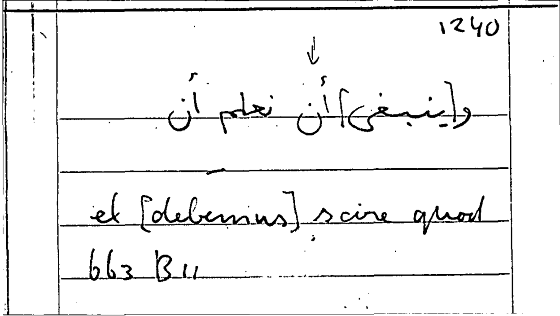 1240
و[ينبغي] أن نعلم أن
et [debemus] scire quod
663 B 11